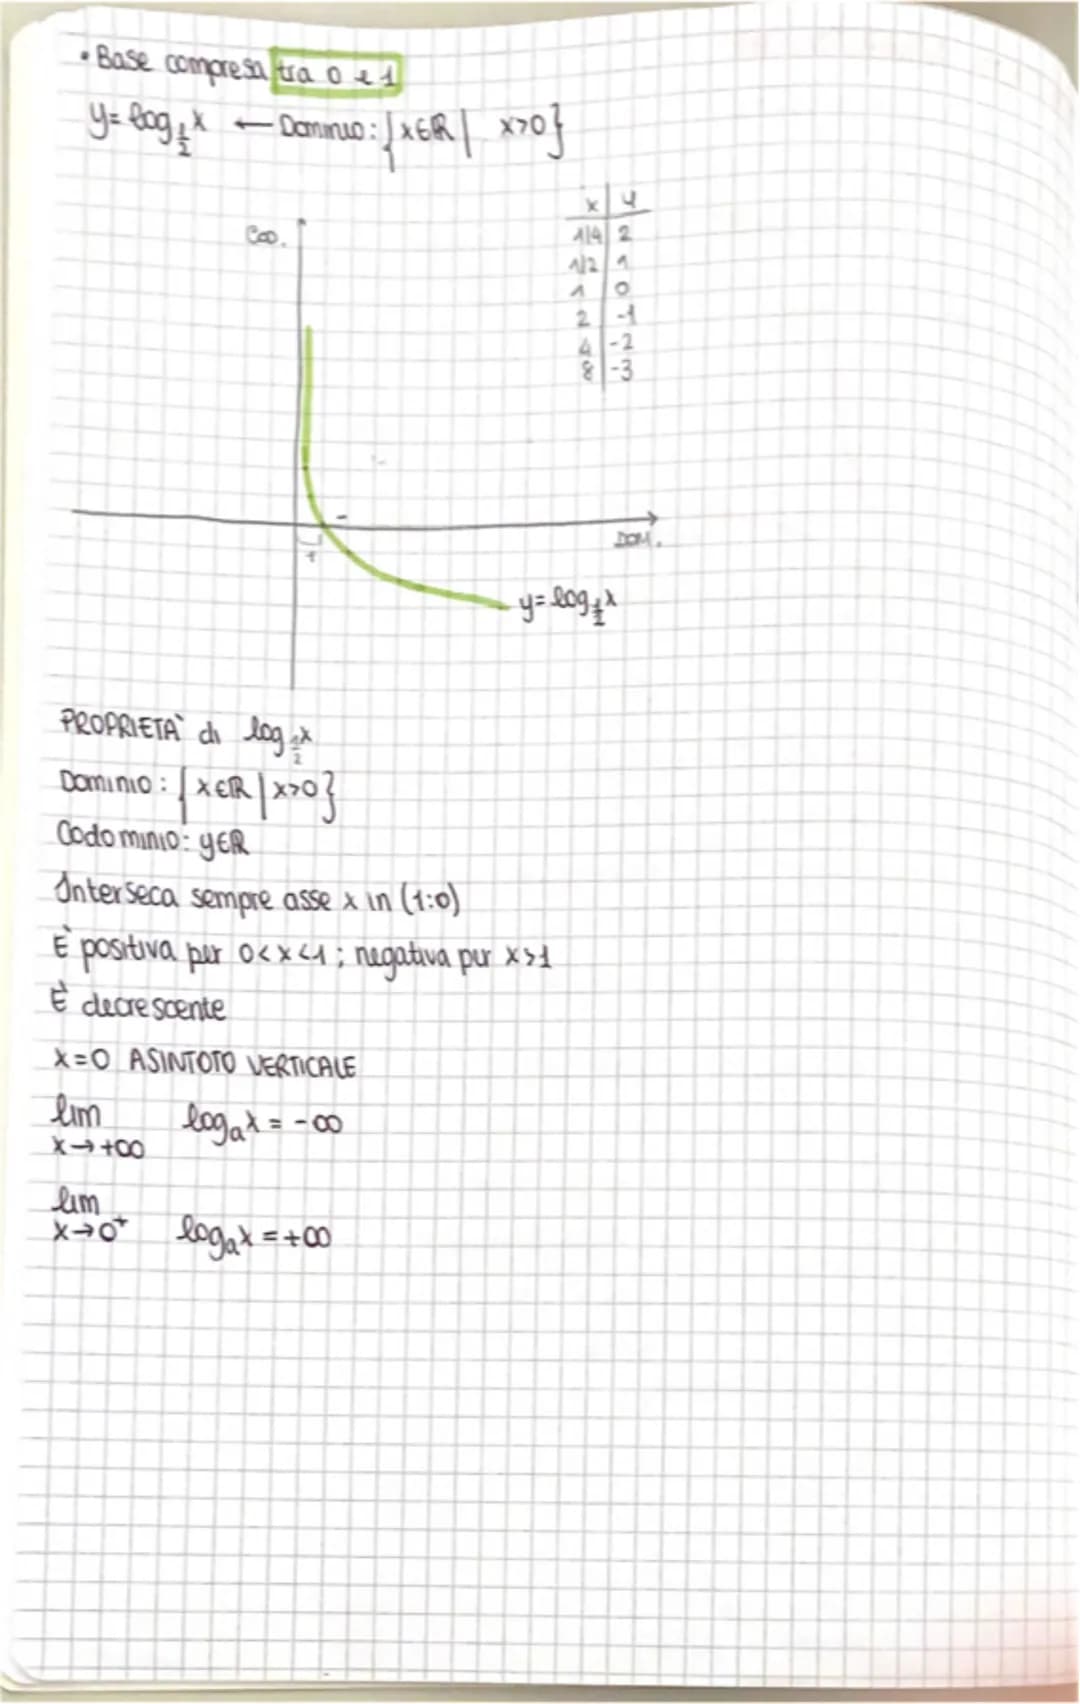 • Base compresa tra 0 e 1
y = log ½ x ← Dominio: {x∈R | x>0}
x | y
1/4 | 2
1/2 | 1
1 | 0
2 | -1
4 | -2
8 | -3
COD.
DOM.
1
y = log ½ x
PROPRIETA' di log ½ x
Dominio: {x∈R | x>0}
Codominio: y∈R
Interseca sempre asse x in (1:0)
E' positiva per 0<x<1; negativa per x>1
E' decrescente
x=0 ASINTOTO VERTICALE
lim logₐx = -∞
x→+∞
lim
x→0⁺ logₐx = +∞